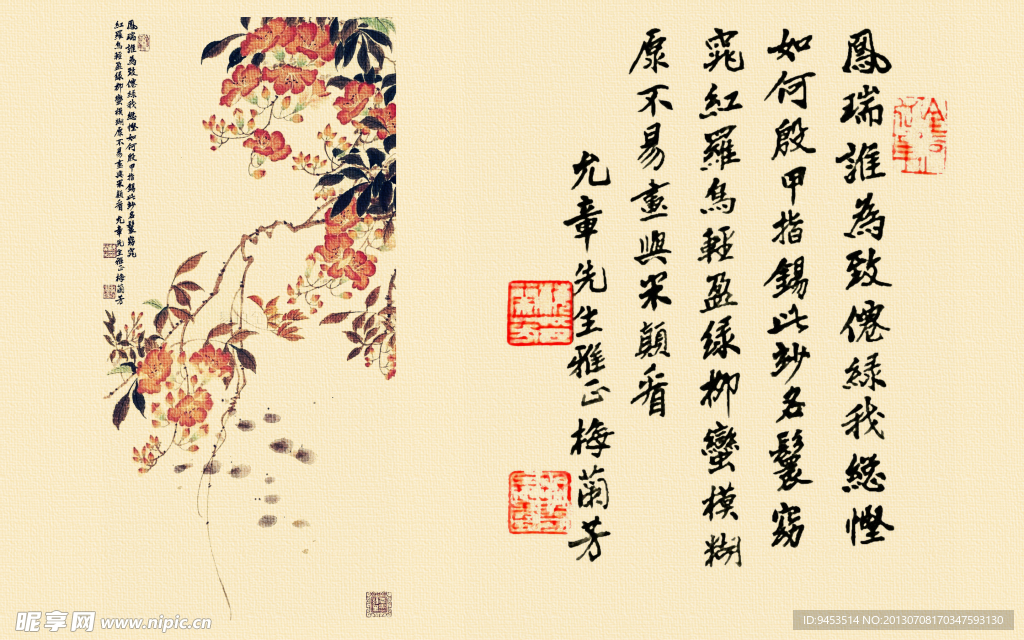 鳳瑞誰為致僊緑我総慳
如何殷甲指錫此玅名鬟窈
窕紅羅鳥輕盈緑柳蠻模糊
原不易畫與米顛看
允章先生雅正梅蘭芳
鳳瑞誰為致僊緑我総慳如何殷甲指錫此玅名鬟窈窕
紅羅鳥輕盈緑柳蠻模糊原不易畫與米顛看 允章先生雅正梅蘭芳
昵享网 www.nipic.cn
ID:9453514 NO:20130708170347593130